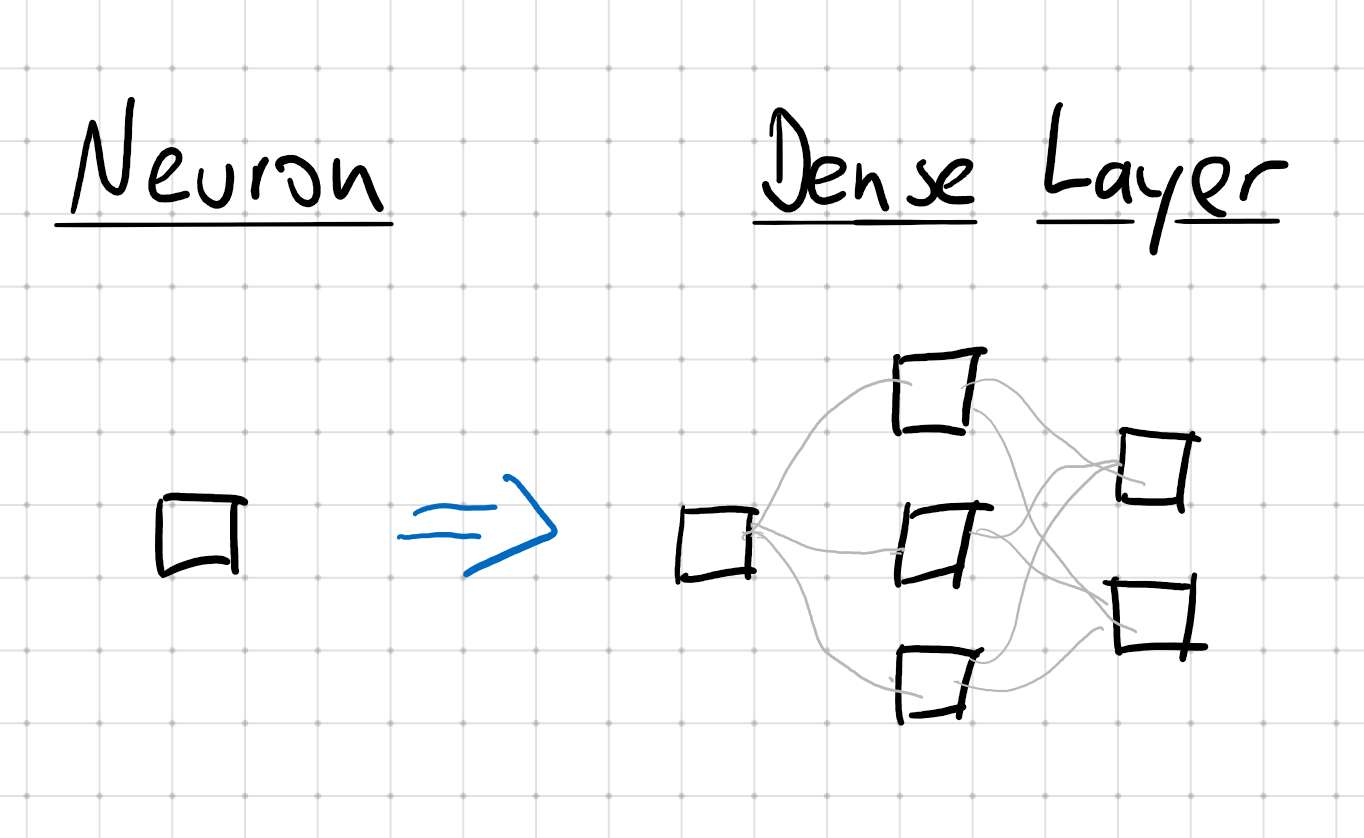 Neuron
Dense Layer